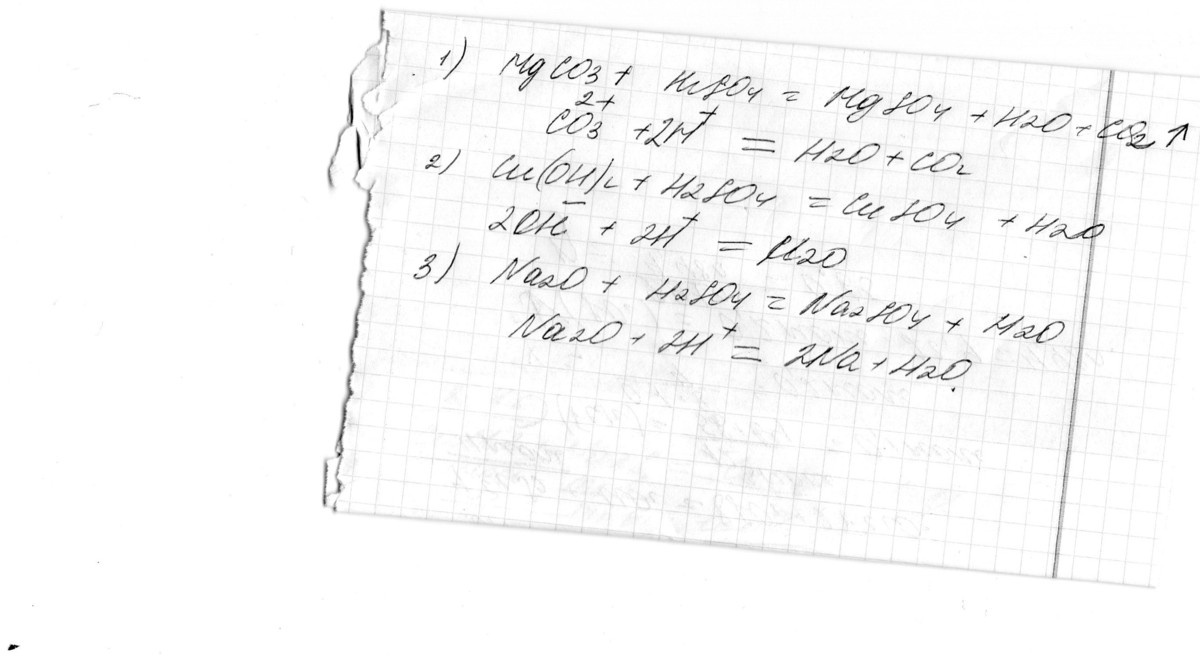 1) MgCO3 + H2SO4 = MgSO4 + H2O + CO2↑
CO3²⁺ + 2H⁺ = H2O + CO2
2) Cu(OH)2 + H2SO4 = CuSO4 + H2O
2OH⁻ + 2H⁺ = H2O
3) Na2O + H2SO4 = Na2SO4 + H2O
Na2O + 2H⁺ = 2Na + H2O.